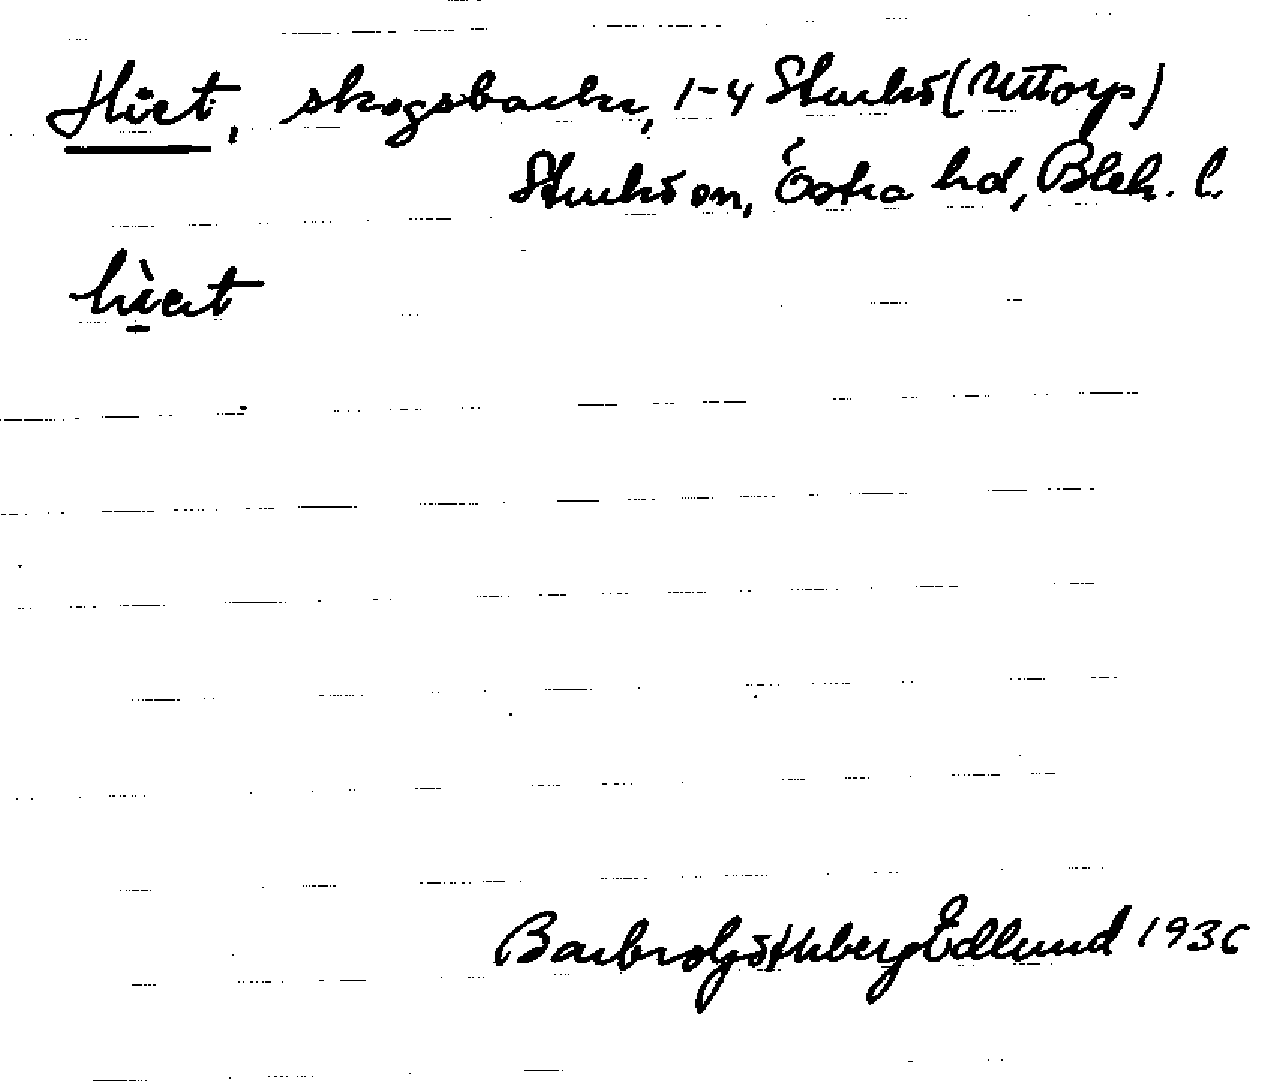 Hiet, skogsbacke, 1-4 Sturkö (Uttorp)
Sturkö sn, Östra hd, Blek. l.
hìet
Barbro Göthberg Edlund 1936